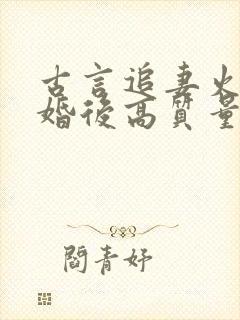 古言追妻火
婚後高質量
閻青妤